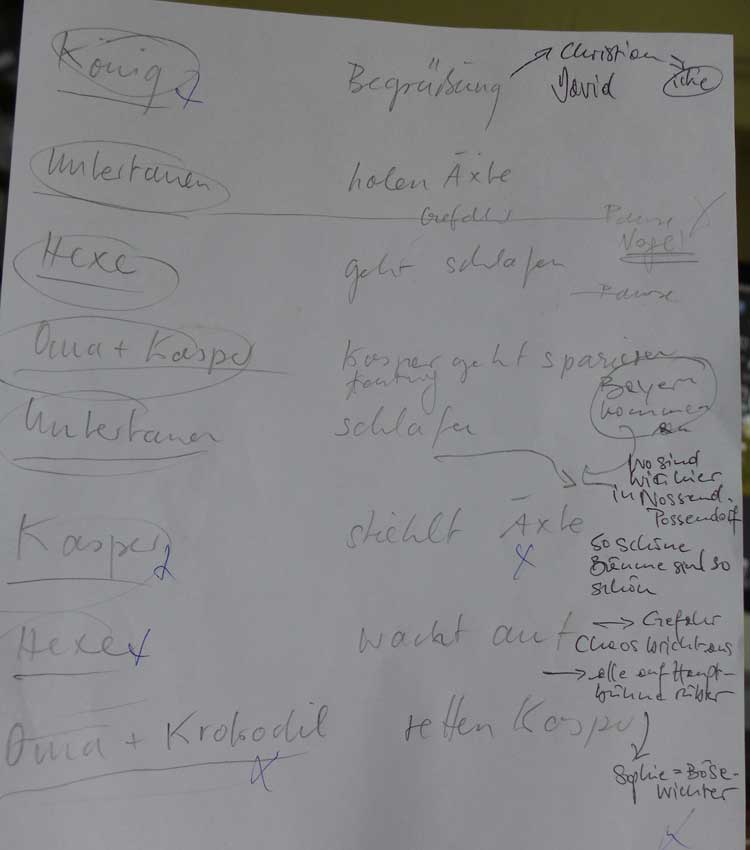 König Begrüßung Christian
David
Untertanen holen Äxte
Gefahr Pause
Vogel
Hexe geht schlafen
Pause
Oma + Kasper Kasper geht spazieren
Bayern
kommen
Untertanen schlafen
wo sind
wir hier
in Nossend.
Possendorf
Kasper stiehlt Äxte
so schöne
Bäume sind so
schön
Hexe wacht auf → Gefahr
Chaos bricht aus
→ alle auf Haupt-
bühne rüber
Oma + Krokodil retten Kasper
Sophie = Böse-
wichter